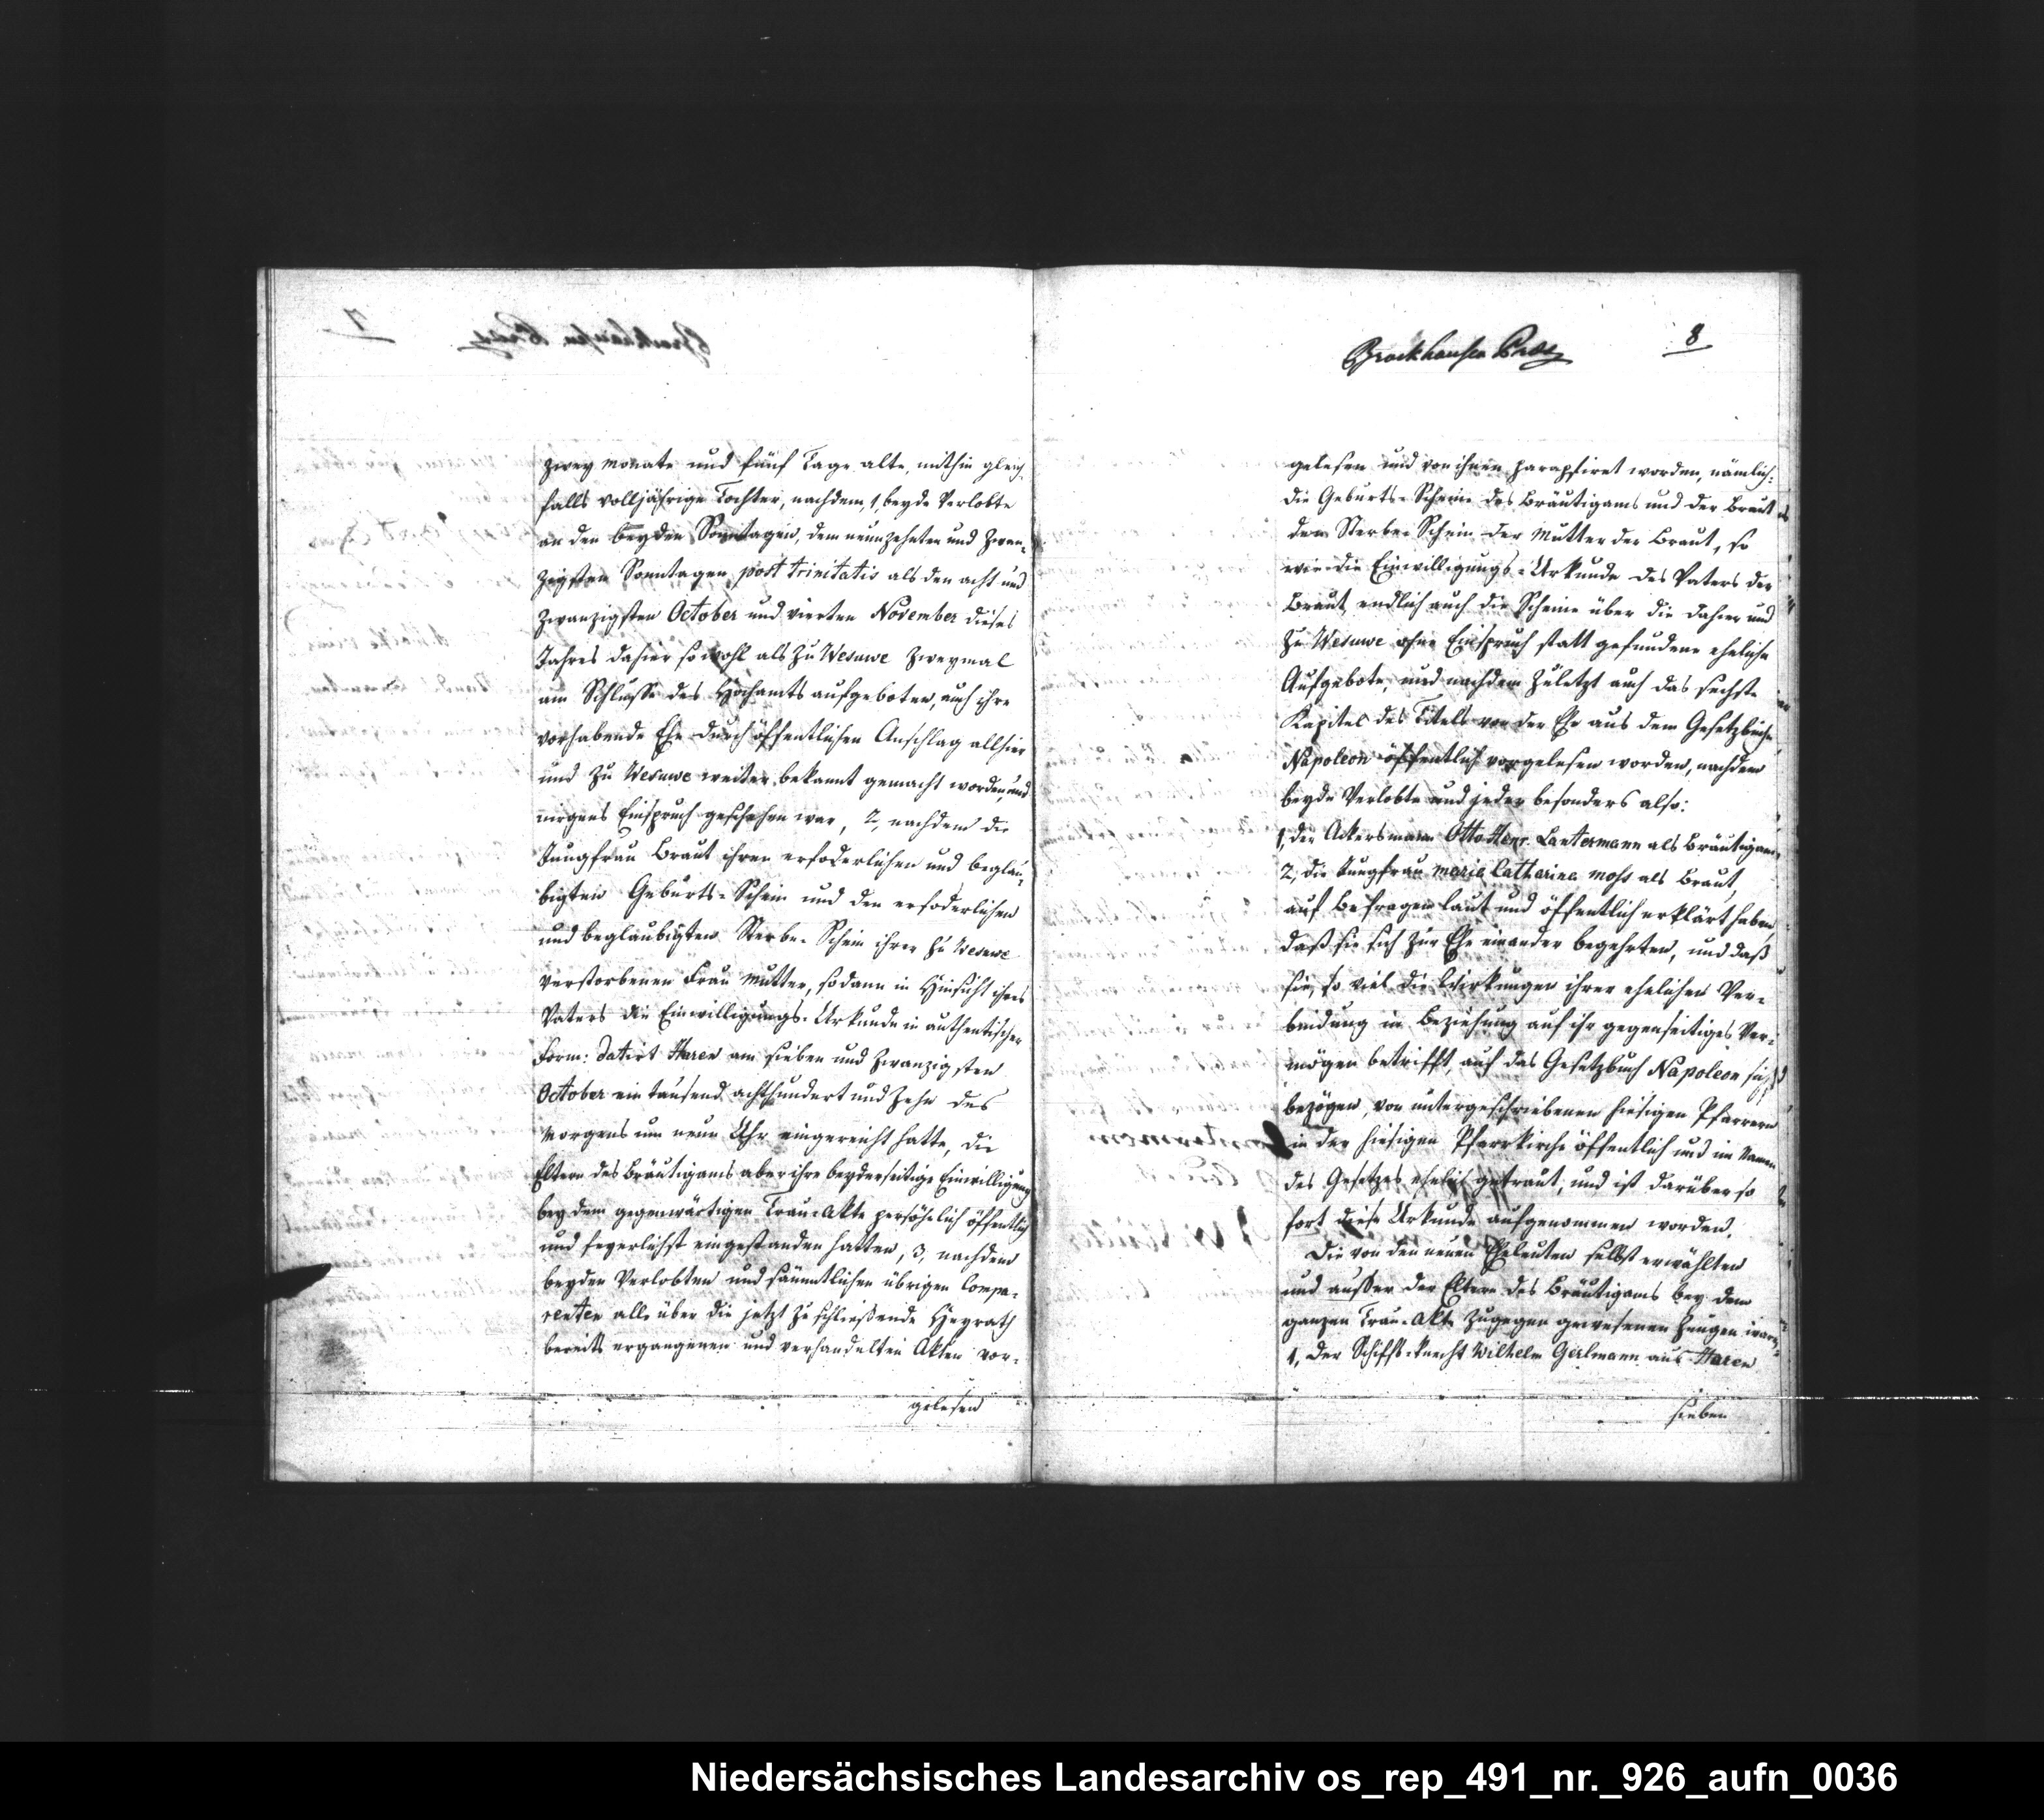 zwey Monate und fünf Tage alte, mithin gleich
falls volljährige Tochter, nachdem, 1, beyde Verlobte
an den beyden Sonntagen, dem neunzehnten und zwan-
zigsten Sonntagen post trinitatis als den acht und
zwanzigsten October und vierten November dieses
Jahres dahier sowohl als zu Wesuwe zweymal
am Schlusse des Hochamts aufgeboten, auch ihre
vorhabende Ehe durch öffentlichen Anschlag allhier
und zu Wesuwe weiter bekannt gemacht worden, und
nirgens Einspruch geschehen war, 2, nachdem die
Jungfrau Braut ihren erfoderlichen und beglau-
bigten Geburts-Schein und den erfoderlichen
und beglaubigten Sterbe-Schein ihrer zu Wesuwe
verstorbenen Frau Mutter, sodann in Hinsicht ihres
Vaters die Einwilligungs-Urkunde in authentischer
Form: datirt Haren am sieben und zwanzigsten
October ein tausend achthundert und zehn des
Morgens um neun Uhr eingereicht hatte, die
Eltern des Bräutigams aber ihre beyderseitige Einwilligung
bey dem gegenwärtigen Trau-Akte persöhnlich öffentlich
und feyerlichst eingestanden hatten, 3, nachdem
beyden Verlobten und sämmtlichen übrigen Compa-
renten alle über die jetzt zu schließende Heyrath
bereits ergangenen und verhandelten Akten vor-
gelesen
Brockhausen Präs
8
gelesen und von ihnen paraphiret worden, nämlich:
die Geburts-Scheine des Bräutigams und der Braut
dem Sterbe-Schein der Mutter der Braut, so
wie die Einwilligungs-Urkunde des Vaters der
Braut endlich auch die Scheine über die dahier und
zu Wesuwe ohne Einspruch statt gefundene eheliche
Aufgebote, und nachdem zuletzt auch das sechste
Kapitel des Titels von der Ehe aus dem Gesetzbuche
Napoleon öffentlich vorgelesen worden, nachdem
beyde Verlobte und jeder besonders also:
1, der Ackersmann Otto Henr. Lantermann als Bräutigam,
2, die Jungfrau Maria Catharina Mohs als Braut,
auf Befragen laut und öffentlich erklärt haben,
daß sie sich zur Ehe einander begehrten, und daß
sie, so viel die Wirkungen ihrer ehelichen Ver-
bindung in Beziehung auf ihr gegenseitiges Ver-
mögen betrifft, auf das Gesetzbuch Napoleon sich
bezögen, von untergeschriebenen hiesigen Pfarrern
in der hiesigen Pfarrkirche öffentlich und im Namen
des Gesetzes ehelich getraut, und ist darüber so
fort diese Urkunde aufgenommen worden.
Die von den neuen Eheleuten selbst erwählten
und ausser der Eltern des Bräutigams bey dem
ganzen Trau-Akte zugegen gewesenen Zeugen waren
1, der Schiffs-Knecht Wilhelm Gerlmann aus Haren
sieben
Niedersächsisches Landesarchiv os_rep_491_nr._926_aufn_0036